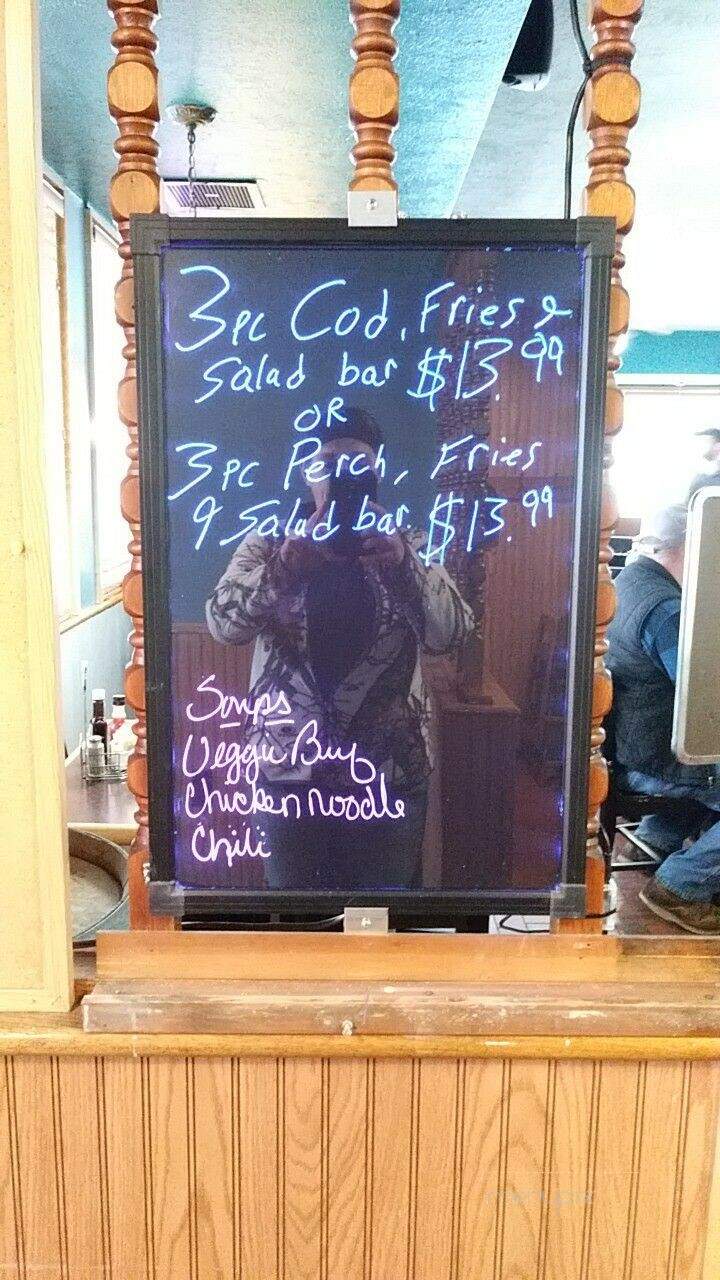 3pc Cod, Fries &
Salad bar $13.99
OR
3pc Perch, Fries
& Salad bar. $13.99
Soups
Veggie Beef
Chicken noodle
Chili